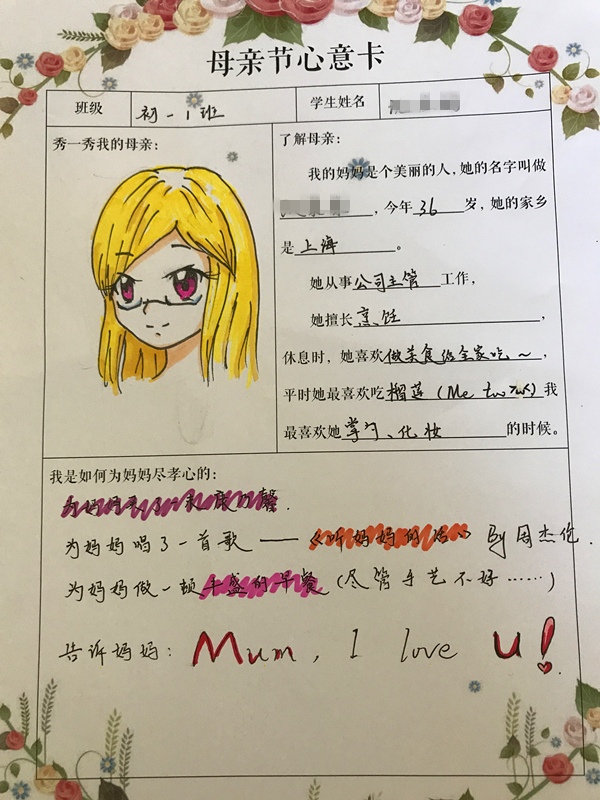 母亲节心意卡
班级 初一1班 学生姓名
秀一秀我的母亲:
了解母亲:
我的妈妈是个美丽的人,她的名字叫做
,今年36岁,她的家乡
是上海。
她从事公司主管工作,
她擅长烹饪,
休息时,她喜欢做美食给全家吃~,
平时她最喜欢吃榴莲(Me too)我
最喜欢她掌勺、化妆的时候。
我是如何为妈妈尽孝心的:
为妈妈
为妈妈唱了一首歌——《听妈妈的话》 By 周杰伦.
为妈妈做一顿丰盛的早餐(尽管手艺不好……)
告诉妈妈: Mum, I love u!